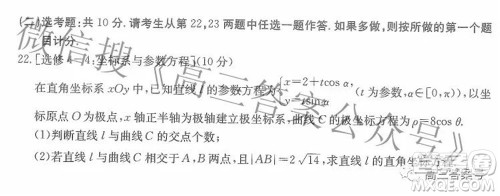 (二)选考题:共 10 分.请考生从第 22,23 两题中任选一题作答.如果多做,则按所做的第一个题
目计分.
22.[选修 4-4:坐标系与参数方程](10 分)
在直角坐标系 xOy 中,已知直线 l 的参数方程为{x=2+tcos α, y=tsin α (t 为参数,α∈[0,π)),以坐
标原点 O 为极点,x 轴正半轴为极轴建立极坐标系,曲线 C 的极坐标方程为 ρ=8cos θ.
(1)判断直线 l 与曲线 C 的交点个数;
(2)若直线 l 与曲线 C 相交于 A,B 两点,且|AB|=2√14,求直线 l 的直角坐标方
微信搜《高三答案公众号》
高三答案号